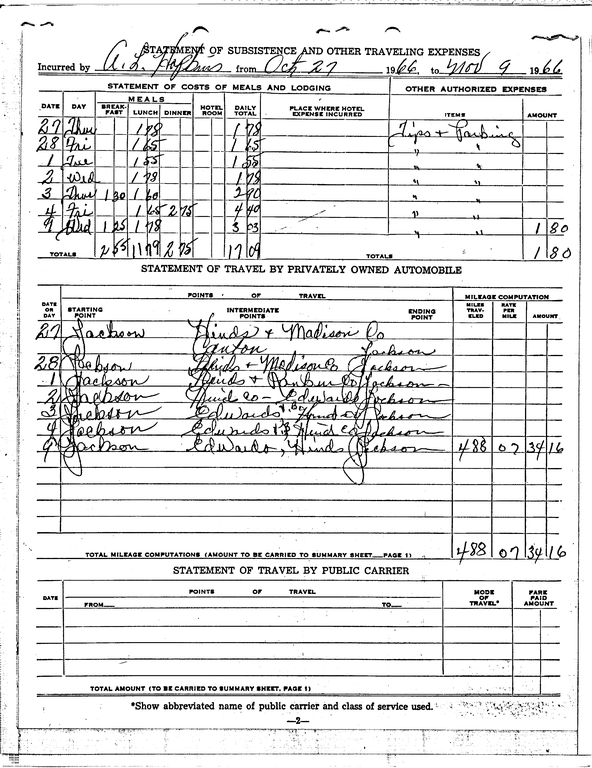 STATEMENT OF SUBSISTENCE AND OTHER TRAVELING EXPENSES
Incurred by A. L. Hopkins from Oct 27 1966, to Nov 9 1966
STATEMENT OF COSTS OF MEALS AND LODGING OTHER AUTHORIZED EXPENSES
DATE DAY MEALS BREAKFAST LUNCH DINNER HOTEL ROOM DAILY TOTAL PLACE WHERE HOTEL EXPENSE INCURRED ITEMS AMOUNT
27 Thu 1 78 1 78 Tips + Parking
28 Fri 1 65 1 65 " "
1 Tue 1 55 1 55 " "
2 Wed 1 78 1 78 " "
3 Thur 1 30 1 60 2 90 " "
4 Fri 1 65 2 75 4 40 " "
9 Wed 1 25 1 78 3 03 " " 1 80
TOTALS 2 55 11 79 2 75 17 09 TOTALS 1 80
STATEMENT OF TRAVEL BY PRIVATELY OWNED AUTOMOBILE
DATE OR DAY POINTS OF TRAVEL MILEAGE COMPUTATION
STARTING POINT INTERMEDIATE POINTS ENDING POINT MILES TRAVELED RATE PER MILE AMOUNT
27 Jackson Hinds + Madison Co
Canton Jackson
28 Jackson Hinds + Madison Co Jackson
1 Jackson Hinds + Rankin Co Jackson
2 Jackson Hind Co - Edwards Jackson
3 Jackson Edwards + Hind Co Jackson
4 Jackson Edwards + Hind Co Jackson
9 Jackson Edwards, Hinds Jackson 488 07 34 16
TOTAL MILEAGE COMPUTATIONS (AMOUNT TO BE CARRIED TO SUMMARY SHEET—PAGE 1) 488 07 34 16
STATEMENT OF TRAVEL BY PUBLIC CARRIER
DATE POINTS OF TRAVEL MODE OF TRAVEL* FARE PAID AMOUNT
FROM— TO—
TOTAL AMOUNT (TO BE CARRIED TO SUMMARY SHEET. PAGE 1)
*Show abbreviated name of public carrier and class of service used.
—2—